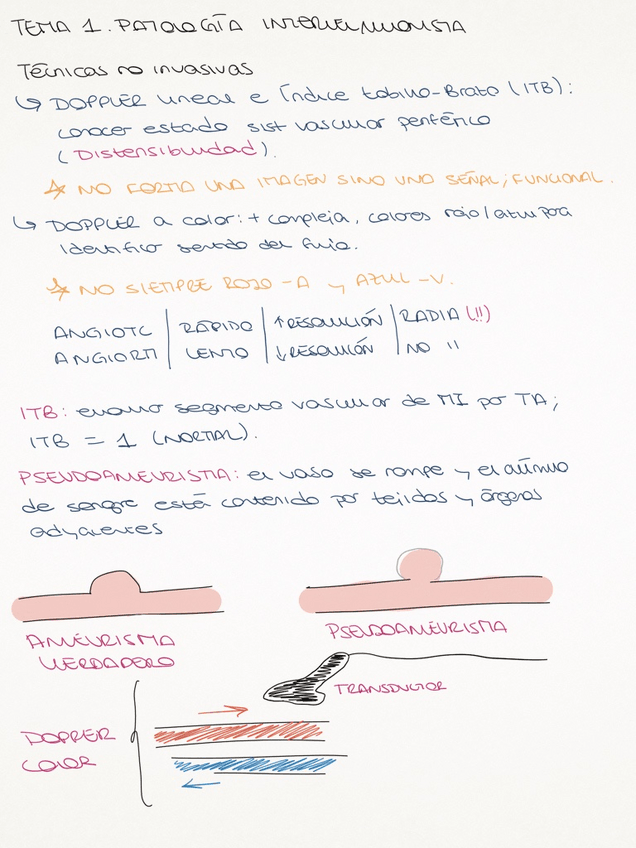 TEMA 1. PATOLOGÍA INTERVENCIONISTA
Técnicas no invasivas
↳ DOPPLER lineal e Índice tobillo-Brazo (ITB):
conocer estado sist vascular periférico
(Distensibilidad).
☆ NO FORMA UNA IMAGEN SINO UNA SEÑAL; FUNCIONAL.
↳ DOPPLER a color: + compleja, colores rojo/azul para
Identificar sentido del flujo.
☆ NO SIEMPRE ROJO-A y AZUL-V.
ANGIOTC | RÁPIDO | ↑RESOLUCIÓN | RADIA (!!)
ANGIORM | LENTO | ↓RESOLUCIÓN | NO "
ITB: evalúo segmento vascular de MI por TA;
ITB = 1 (NORMAL).
PSEUDOANEURISMA: el vaso se rompe y el cúmulo
de sangre está contenido por tejidos y órganos
adyacentes
ANEURISMA
VERDADERO
PSEUDOANEURISMA
TRANSDUCTOR
DOPPLER
COLOR